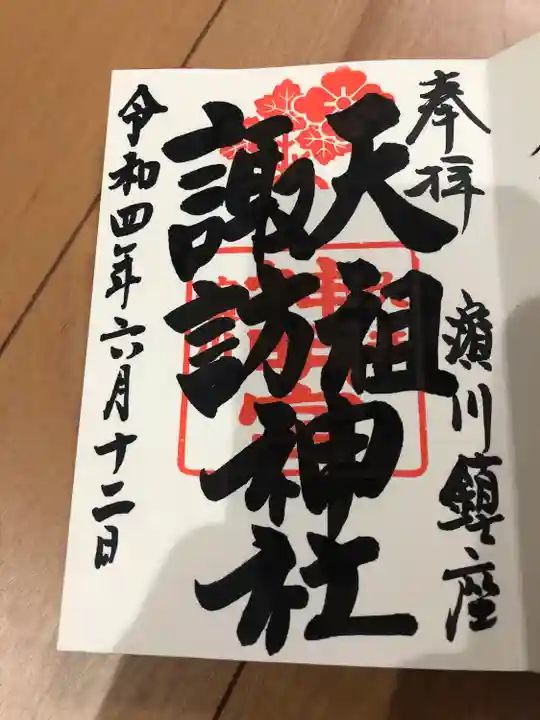 奉拝　濱川鎮座
天祖神社
諏訪神社
令和四年六月十二日